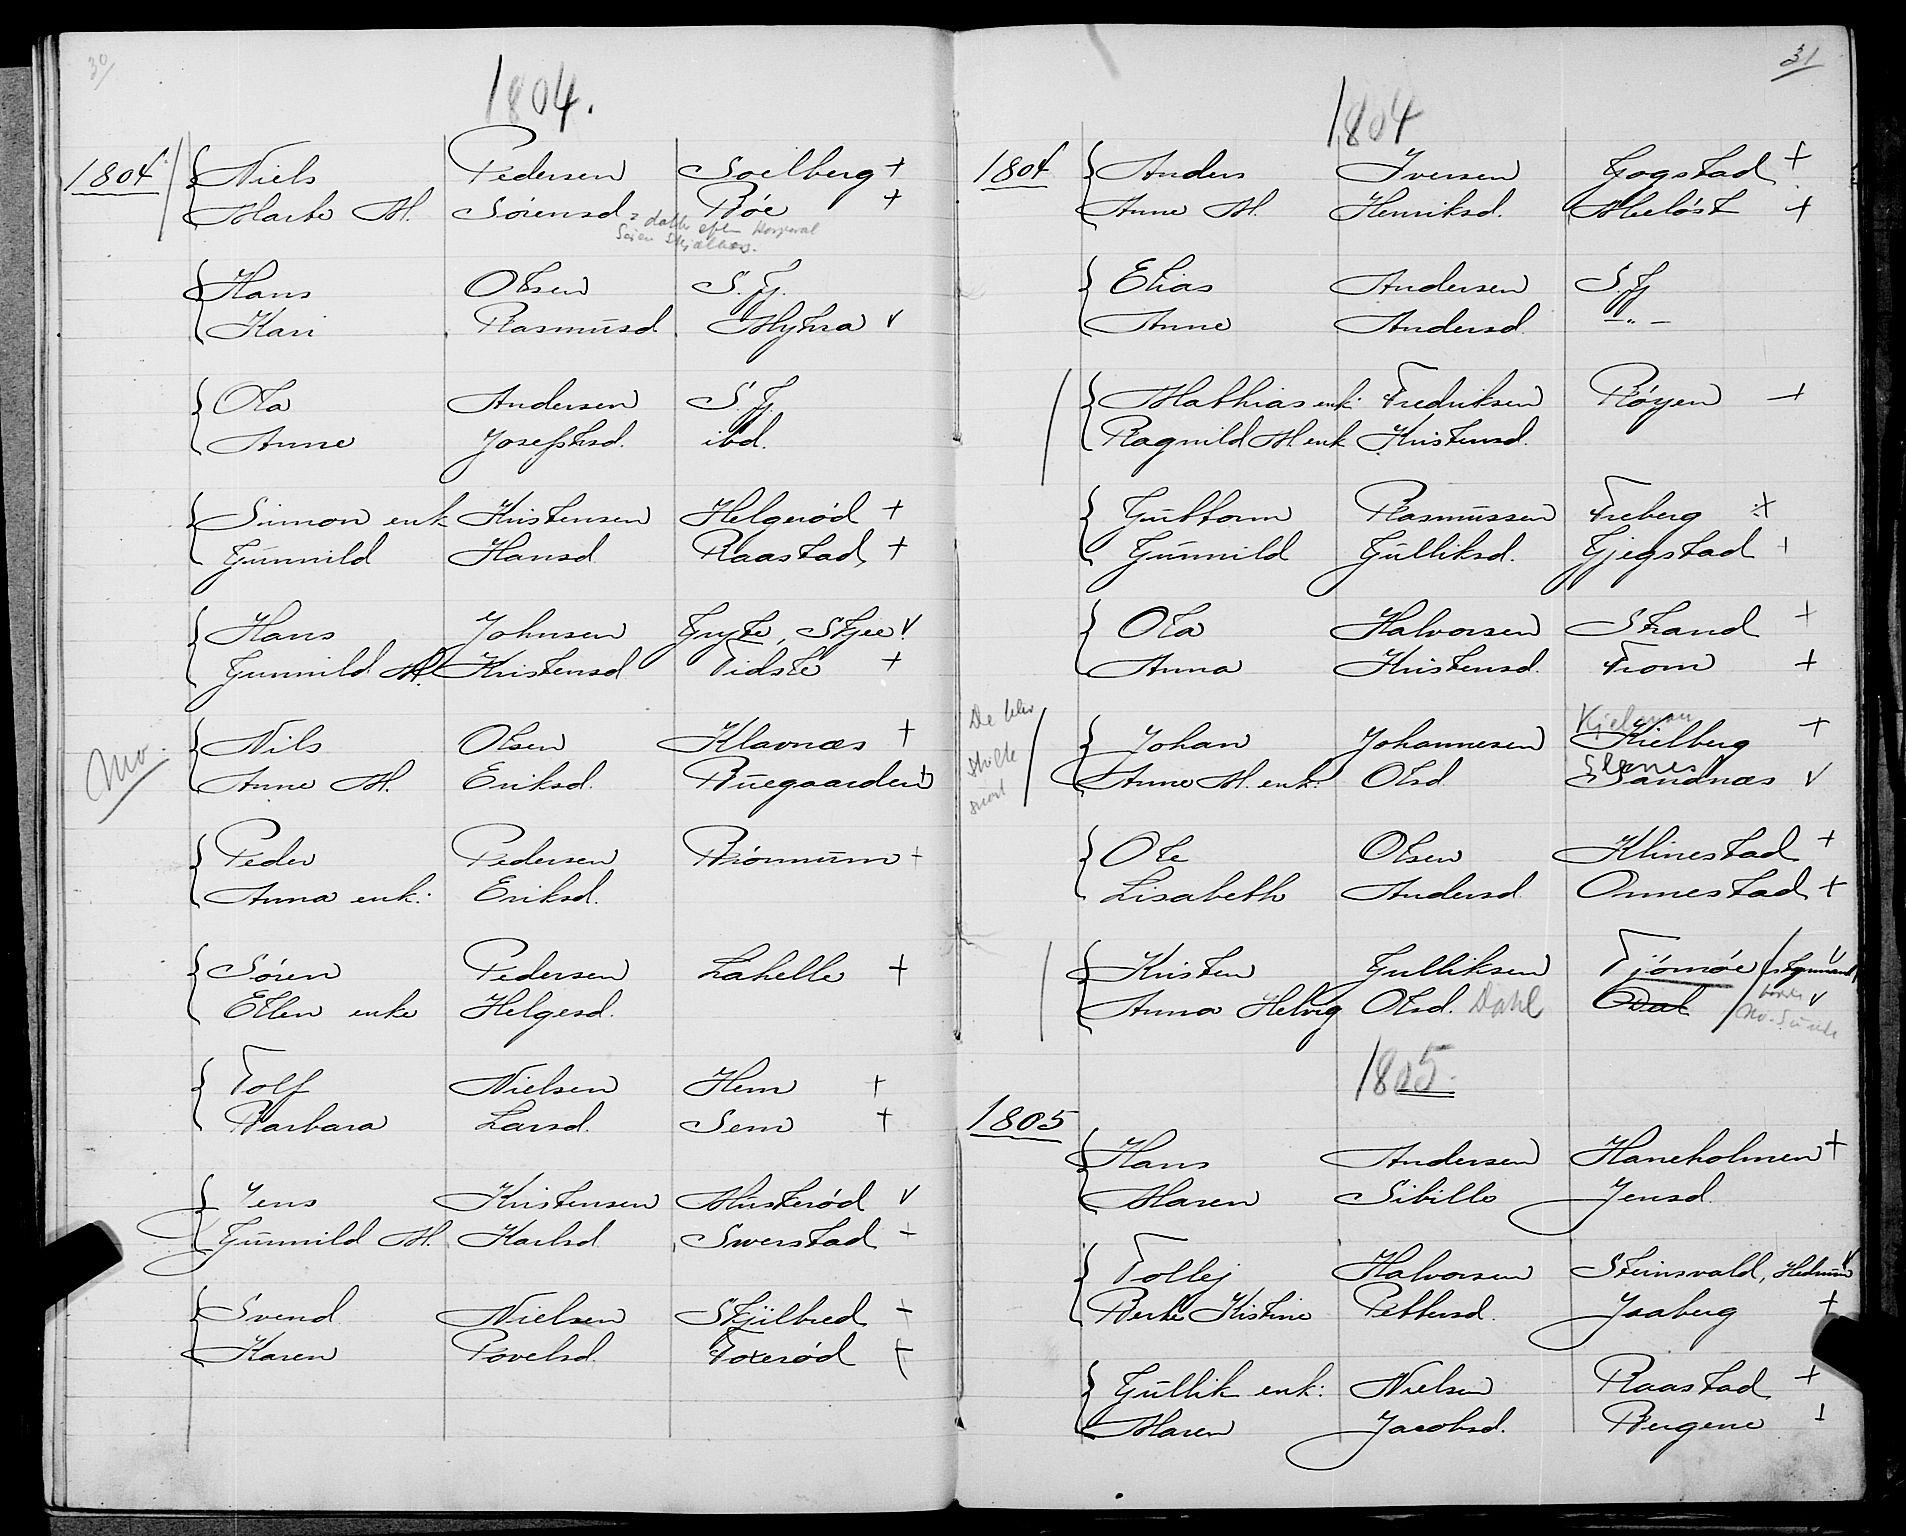 30
1804.
1804 Niels Pedersen Soelberg +
Marte M. Sörensd Böe +
? datter efter Korporal
Sören
Hans Olsen S. Fj.
Kari Rasmusd. Myhra v
Ola Andersen S. Fj.
Anne Josefsd. ibd.
Simon enk Kristensen Helgerød +
Gunnild Hansd Raastad +
Hans Johnsen Gryte, Skjee v
Gunnild M. Kristensd Vidste +
Nils Olsen Klavnæs +
Mo.
Anne M. Eriksd. Buegaarden +
Peder Pedersen Brönnum +
Anna enk: Eriksd.
Sören Pedersen Lahelle +
Ellen enke Helgesd.
Tolf Nielsen Hem +
Barbara Larsd. Sem +
Jens Kristensen Musterød v
Gunnild M. Karlsd Sverstad +
Svend Nielsen Skjilbred +
Karen Povelsd. Foxerød +
31
1804
1804 Anders Iversen Gogstad +
Anne M. Henriksd. Meløst +
Elias Andersen S. Fj
Anne Andersd. – " –
Mathias enk: Fredriksen Röyen +
Ragnild M enk Kristensd.
Guttorm Rasmussen Freberg +
Gunnild Gulliksd. Gjegstad +
Ola Halvorsen Strand +
Anna Kristensd. From +
De blev
Johan Johannesen Kielberg +
skilte
Anne M. enk: Olsd. Sandnæs v
snart
Ole Olsen Klinestad +
Lisabeth Andersd. Ormestad +
Kristen Gulliksen Tjömöe / styrmand v
Anna Helvig Olsd. Dahl Dal / v
1805.
1805
Hans Andersen Haneholmen +
Maren Sibille Jensd.
Tollej Halvorsen Steinsvald, Hedrum v
Berte Kistine Pettersd. Jaaberg +
Gullik enk: Nielsen Raastad +
Maren Jacobsd. Bergene +